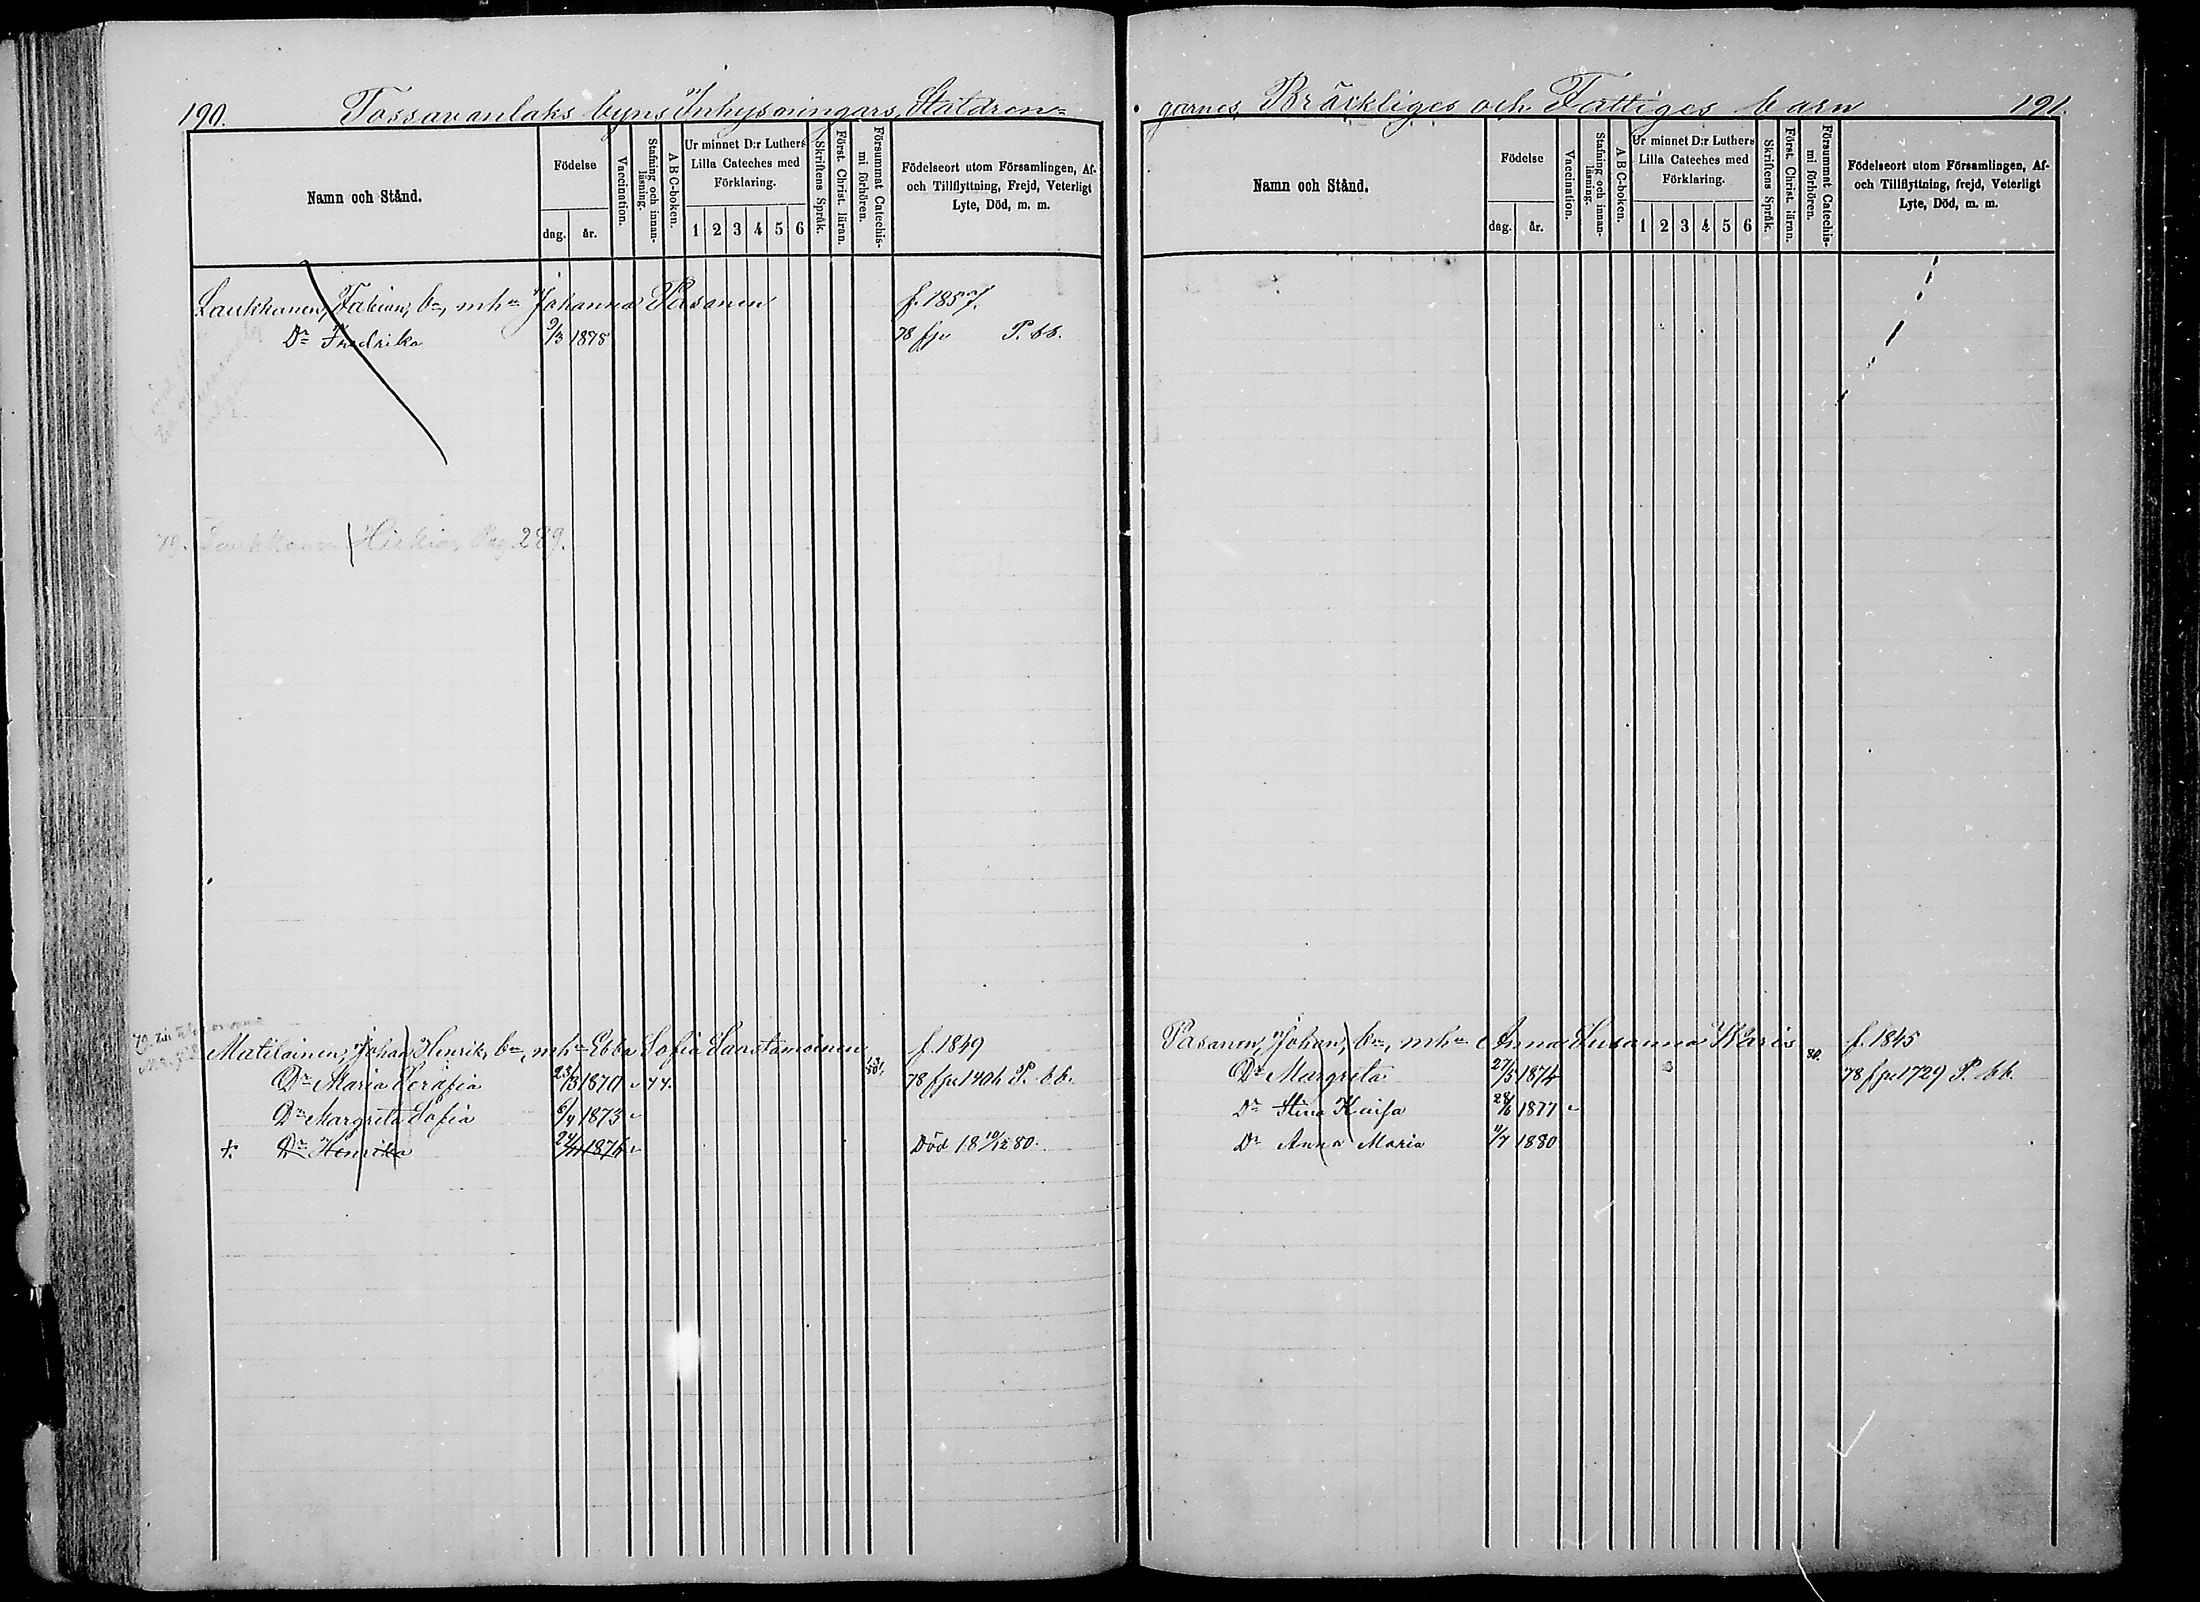 190. Tossavanlaks byns Inhysningars, Statdren=
Namn och Stånd.
Födelse
dag.
år.
Vaccination.
Stafning och innan-
läsning.
A B C-boken.
Ur minnet D:r Luthers
Lilla Cateches med
Förklaring.
1 2 3 4 5 6
Skriftens Språk.
Först. Christ. läran.
Försummat Catechis-
mi förhören.
Födelseort utom Församlingen, Af-
och Tillflyttning, Frejd, Veterligt
Lyte, Död, m. m.
Laukkanen, Fabian, bn, mhn Johanna Pasanen f. 1857.
Dr Fredrika 9/3 1878 78 fp P. bb.
79. Laukkanen Hiskias Pag. 289.
Matilainen, Johan Henrik, bn, mhn Ebba Sofia Saastamoinen f. 1849
Dr Maria Serafia 23/3 1870 v 77. 78 fp 1401 P. bb.
Dr Margreta Sofia 6/9 1873 v
†. Dr Henrika 1876 v Död 18 10/12 80.
garnes, Bräckliges och Fattiges barn 191.
Namn och Stånd.
Födelse
dag.
år.
Vaccination.
Stafning och innan-
läsning.
A B C-boken.
Ur minnet D:r Luthers
Lilla Cateches med
Förklaring.
1 2 3 4 5 6
Skriftens Språk.
Först. Christ. läran.
Försummat Catechis-
mi förhören.
Födelseort utom Församlingen, Af-
och Tillflyttning, frejd, Veterligt
Lyte, Död, m. m.
Pasanen, Johan, bn, mhn Anna Susanna Karis 80. f. 1845
Dr Margreta 27/5 1874 78 fp 1729 P. bb.
Dr Stina Kaisa 28/6 1877 v
Dr Anna Maria 11/7 1880